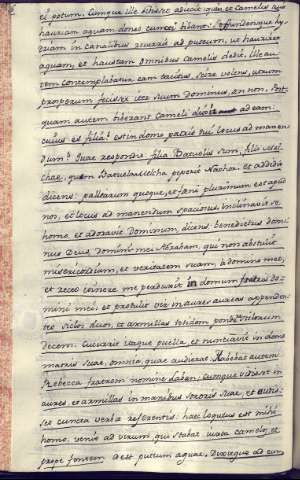 ei potum. Cumque ille bibisset adjecit quin et Camelis tuis
hauriam aquam donec cuncti bibant. Effundensque hy-
driam in canalibus recurrit ad puteum, ut hauriret
aquam, et haustam omnibus camelis dedit. Ille au
tem contemplabatur eam tacitus, scire volens, utrum
prosperum fecisset iter suum Dominus, an non. Post
quam autem biberant Cameli dixit ad eam:
cuius es filia? est in domo patris tui locus ad manen
dum? Quae respondit filia Bathuelis sum, filii Mel
chae, quem peperit Nachor. et addidit
dicens: palearum quoque, et foeni plurimum est apud
nos, et locus ad manendum spaciosus. inclinavit se
homo, et adoravit Dominum, dicens: benedictus Domi
nus Deus domini mei Abraham, qui non abstulit
misericordiam, et veritatem suam, à domino meo,
et recto itinere me perduxit in domum fratris do
mini mei. et protulit vir inaures aureas appenden
tes siclos duos, et armillas totidem pondo siclorum
decem. Cucurrit itaque puella, et nunciavit in domum
matris suae, omnia, quae audierat. Habebat autem
Rebecca fratrem nomine Laban: cumque vidisset in
aures, et armillas in manibus sororis suae, et audis-
set cuncta verba referentis: haec locutus est mihi
homo. venit ad virum qui stabat iuxta camelos, et
prope fontem aquae. Dixitque ad eum